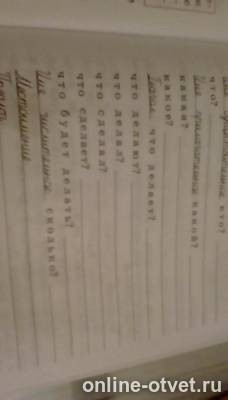 что?
Имя прилагательное какой?
какая?
какое?
Глагол что делает?
что делают?
что делал?
что сделал?
что сделает?
что будет делать?
Имя числительное сколько?
Местоимение
online-otvet.ru